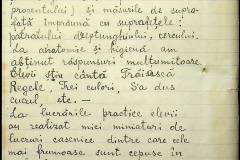 procentului) și măsurile de supra-
față împreună cu suprafețele:
patratului dreptunghiului, cercului.
La anatomie și higienă am
obținut răspunsuri mulțumitoare
Elevii știu cânta Trăiască
Regele, Trei culori, S'a dus
cucul, etc. —
La lucrările practice elevii
au realizat mici miniaturi de
lucruri casnice dintre care cele
mai frumoase sunt depuse în